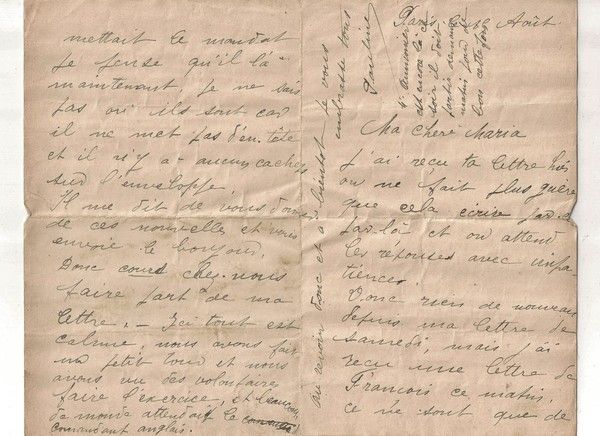 Paris, le 12 Août.
Ma chère Maria
J'ai reçu ta lettre hier
on ne fait plus guère
que cela écrire par-ci
par-là et on attend
les réponses avec impa
tience.
Donc rien de nouveau
depuis ma lettre de
samedi, mais j'ai
reçu une lettre de
François ce matin,
ce ne sont que de
mettait le mandat
je pense qu'il l'a
maintenant, je ne sais
pas où ils sont car
il ne met pas d'en-tête
et il n'y a aucun cachet
sur l'enveloppe.
Il me dit de vous donner
de ces nouvelles et vous
envoie le bonjour.
Donc cours chez-nous
faire part de ma
lettre. - Ici tout est
calme, nous avons fait
un petit tour et nous
avons vu des volontaires
faire l'exercice, et beaucoup
de monde attendant le
commandant anglais.
au revoir donc et à bientôt je vous
embrasse tous
Pauline
soir il doit
partir demain
matin